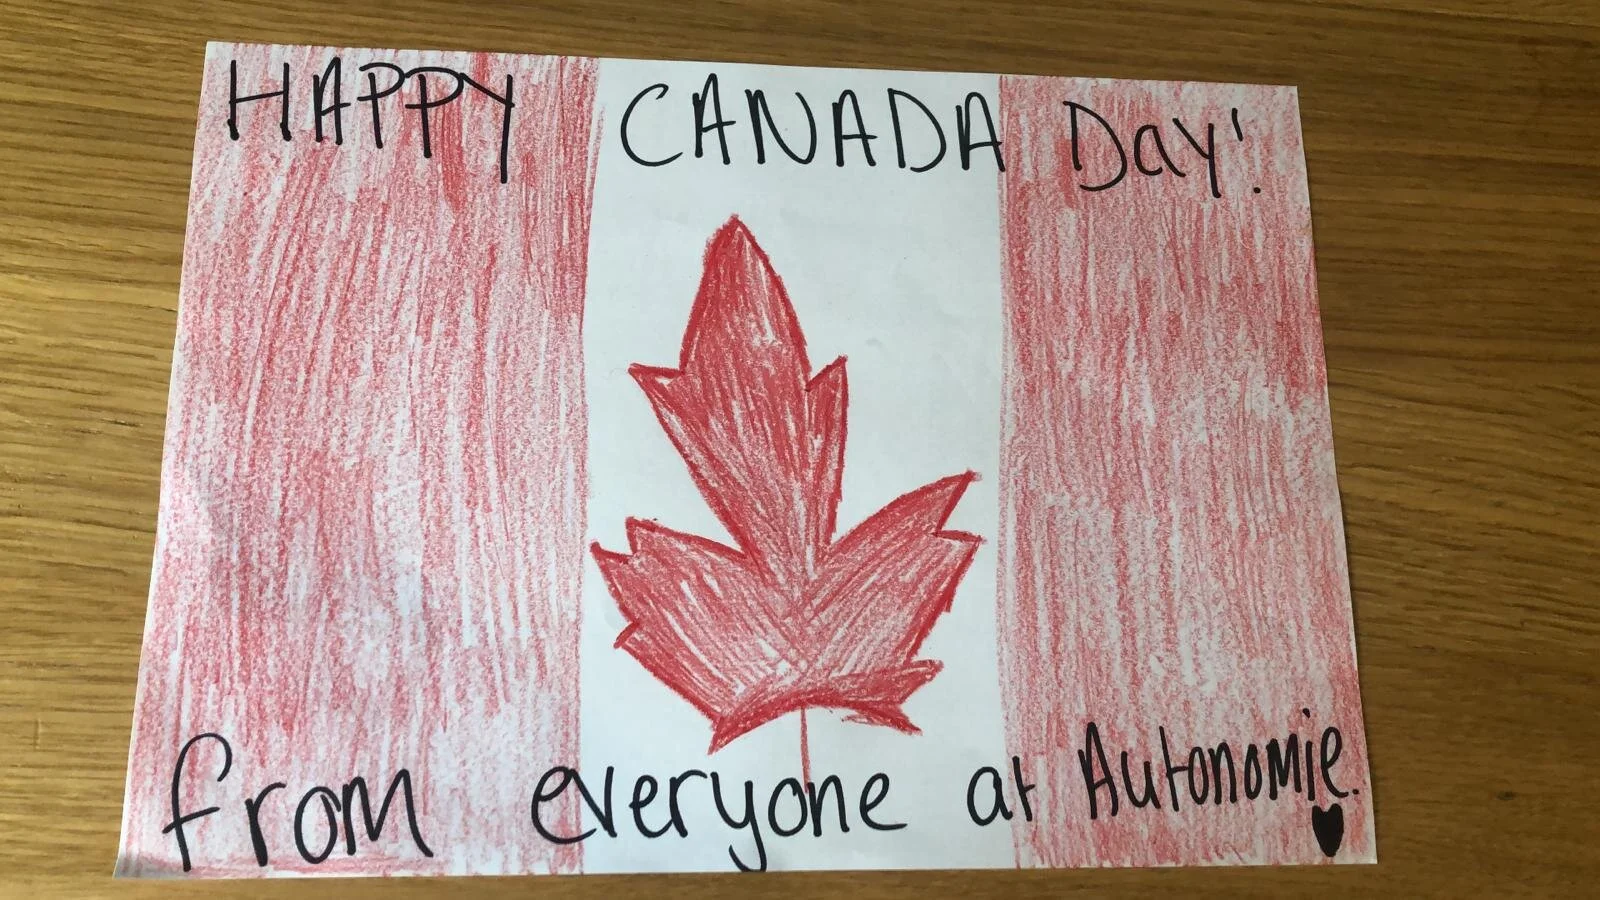 HAPPY CANADA Day!
from everyone at Autonomie.